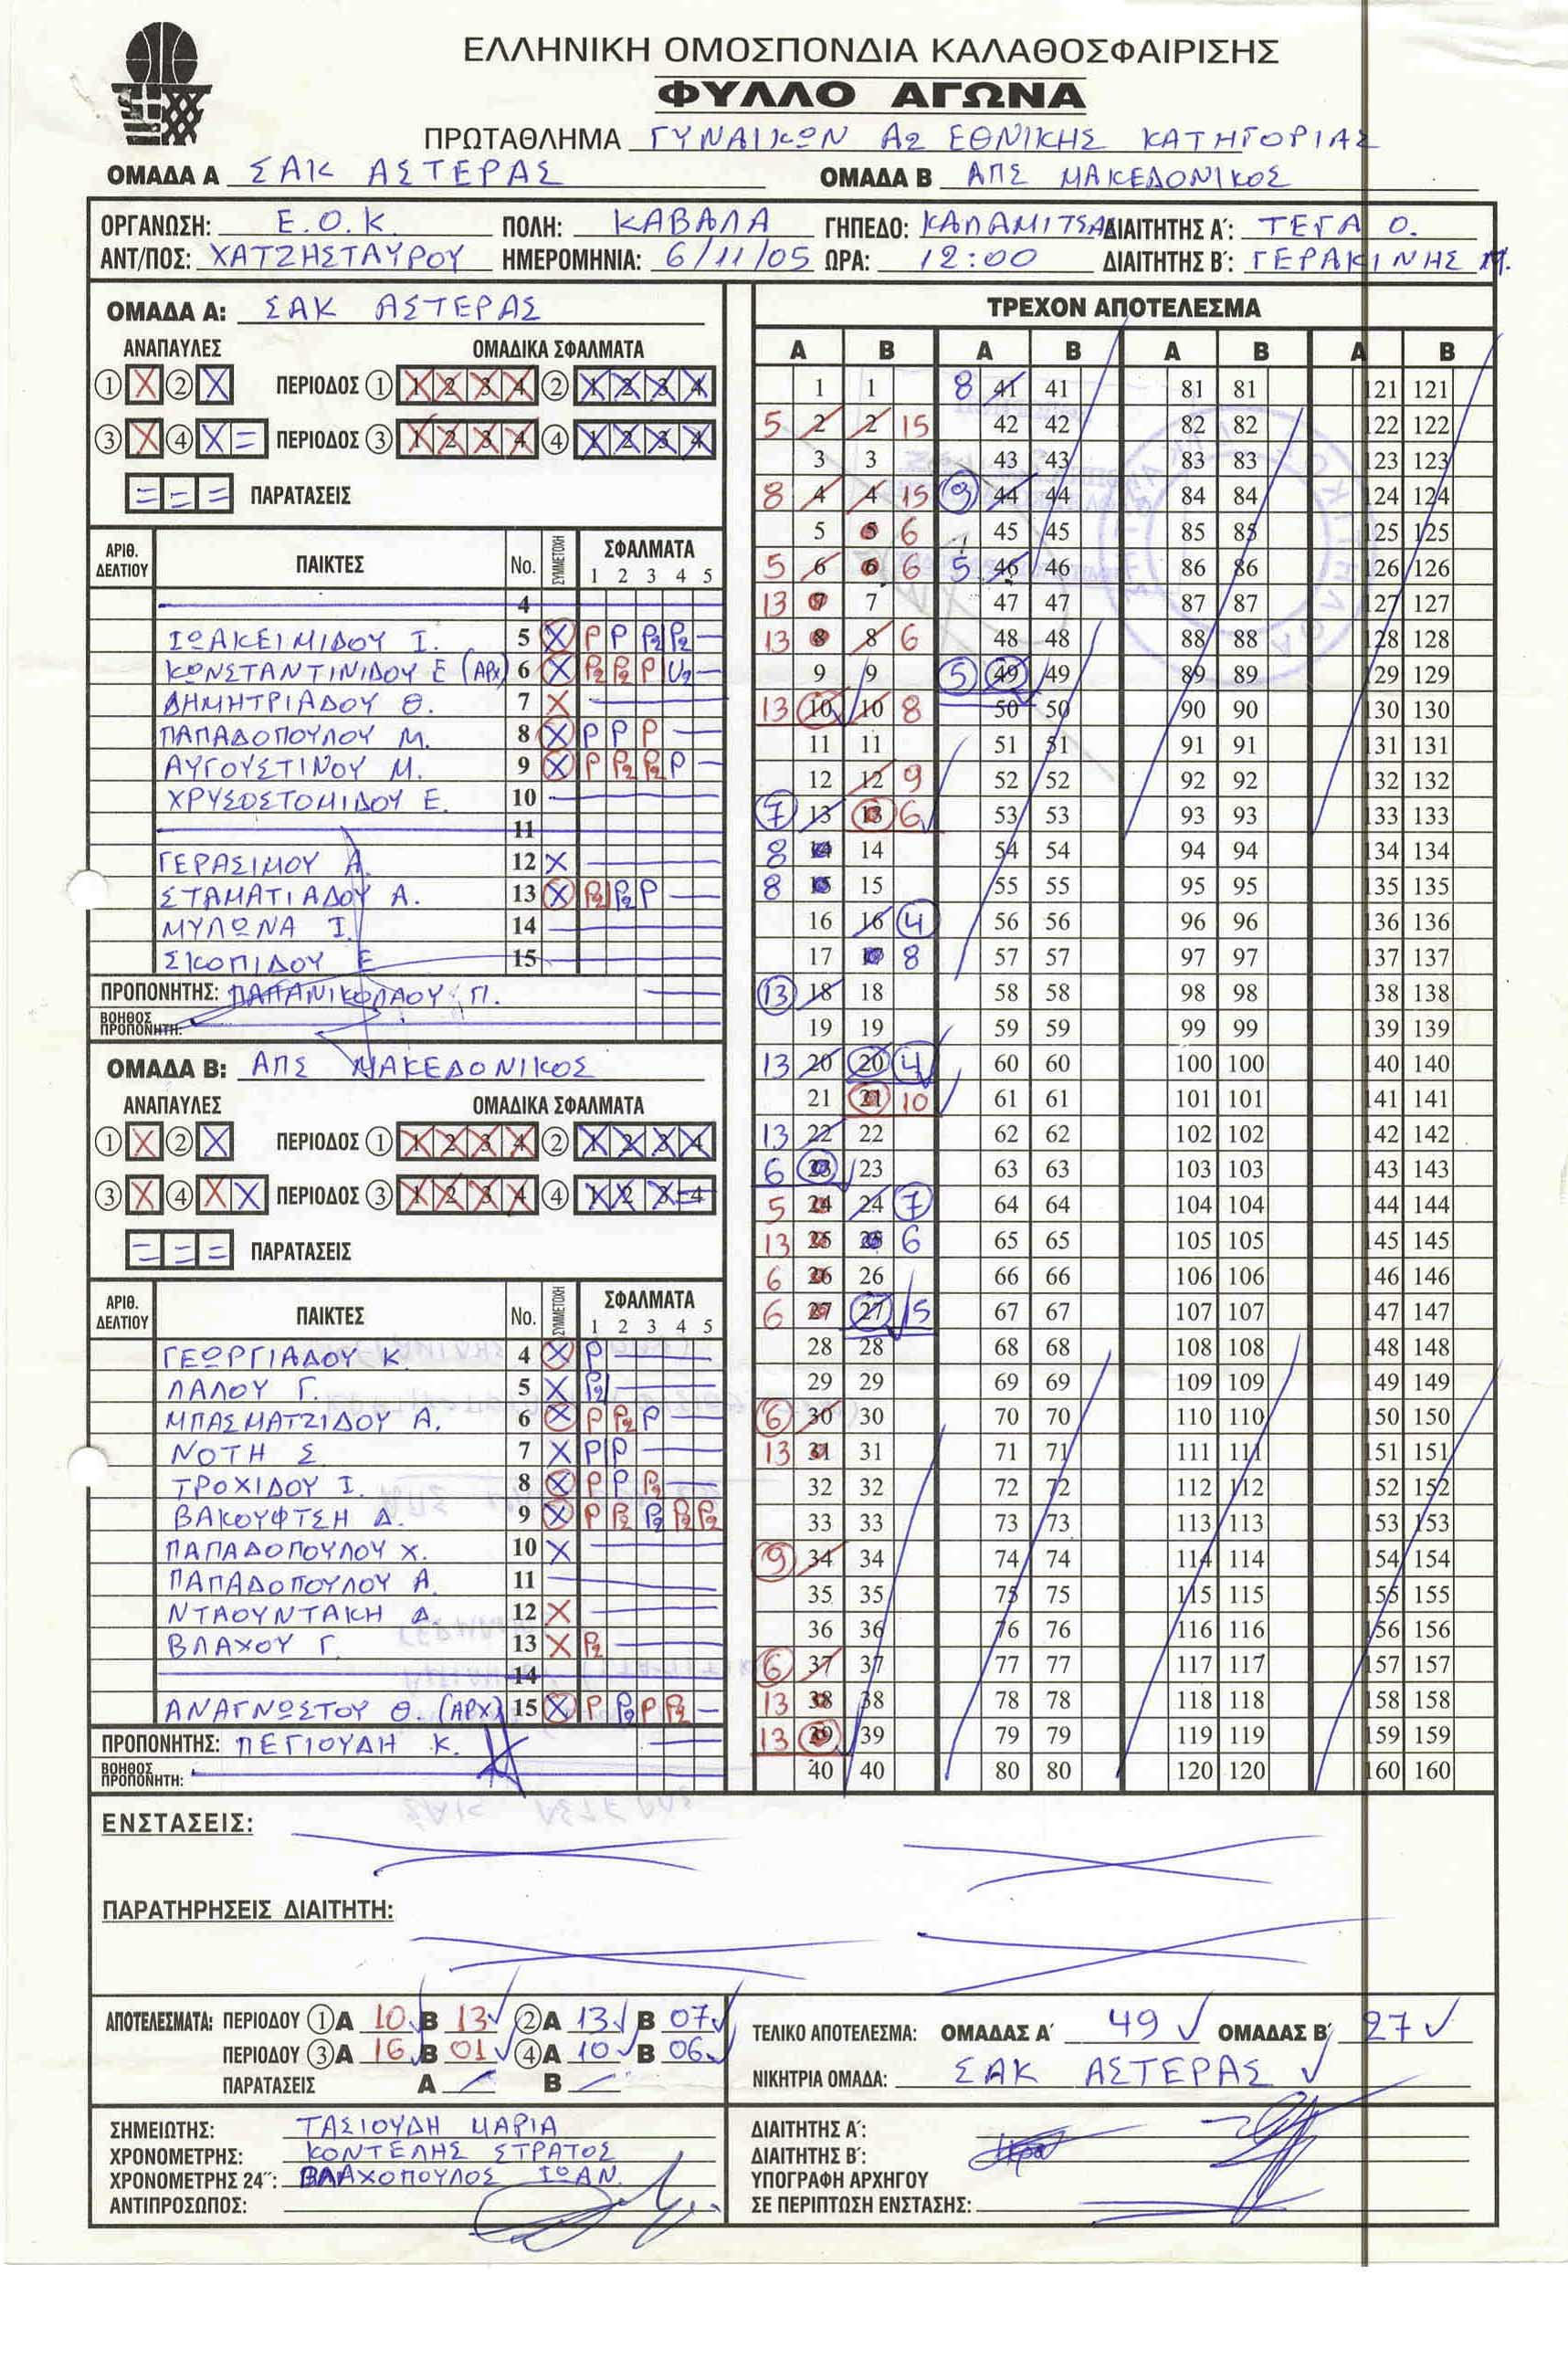 ΕΛΛΗΝΙΚΗ ΟΜΟΣΠΟΝΔΙΑ ΚΑΛΑΘΟΣΦΑΙΡΙΣΗΣ
ΦΥΛΛΟ ΑΓΩΝΑ
ΠΡΩΤΑΘΛΗΜΑ ΓΥΝΑΙΚΩΝ Α2 ΕΘΝΙΚΗΣ ΚΑΤΗΓΟΡΙΑΣ
ΟΜΑΔΑ Α ΣΑΚ ΑΣΤΕΡΑΣ ΟΜΑΔΑ Β ΑΠΣ ΜΑΚΕΔΟΝΙΚΟΣ
ΟΡΓΑΝΩΣΗ: Ε.Ο.Κ. ΠΟΛΗ: ΚΑΒΑΛΑ ΓΗΠΕΔΟ: ΚΑΛΑΜΙΤΣΑ ΔΙΑΙΤΗΤΗΣ Α': ΤΕΓΑ Ο.
ΑΝΤ/ΠΟΣ: ΧΑΤΖΗΣΤΑΥΡΟΥ ΗΜΕΡΟΜΗΝΙΑ: 6/11/05 ΩΡΑ: 12:00 ΔΙΑΙΤΗΤΗΣ Β': ΓΕΡΑΚΙΝΗΣ Μ.
ΟΜΑΔΑ Α: ΣΑΚ ΑΣΤΕΡΑΣ
ΑΝΑΠΑΥΛΕΣ ΟΜΑΔΙΚΑ ΣΦΑΛΜΑΤΑ
1 X 2 X ΠΕΡΙΟΔΟΣ 1 1 2 3 4 2 1 2 3 4
3 X 4 X = ΠΕΡΙΟΔΟΣ 3 1 2 3 4 4 1 2 3 4
= = = ΠΑΡΑΤΑΣΕΙΣ
ΑΡΙΘ. ΔΕΛΤΙΟΥ ΠΑΙΚΤΕΣ No. ΣΥΜΜΕΤΟΧΗ ΣΦΑΛΜΑΤΑ 1 2 3 4 5
4
ΙΩΑΚΕΙΜΙΔΟΥ Ι. 5 X P P P2 P2
ΚΩΝΣΤΑΝΤΙΝΙΔΟΥ Ε (ΑΡΧ) 6 X P2 P2 P U2
ΔΗΜΗΤΡΙΑΔΟΥ Θ. 7 X
ΠΑΠΑΔΟΠΟΥΛΟΥ Μ. 8 X P P P
ΑΥΓΟΥΣΤΙΝΟΥ Μ. 9 X P P2 P2 P
ΧΡΥΣΟΣΤΟΜΙΔΟΥ Ε. 10
11
ΓΕΡΑΣΙΜΟΥ Α. 12 X
ΣΤΑΜΑΤΙΑΔΟΥ Α. 13 X P2 P2 P
ΜΥΛΩΝΑ Ι. 14
ΣΚΟΠΙΔΟΥ Ε 15
ΠΡΟΠΟΝΗΤΗΣ: ΠΑΠΑΝΙΚΟΛΑΟΥ Π.
ΒΟΗΘΟΣ ΠΡΟΠΟΝΗΤΗ:
ΟΜΑΔΑ Β: ΑΠΣ ΜΑΚΕΔΟΝΙΚΟΣ
ΑΝΑΠΑΥΛΕΣ ΟΜΑΔΙΚΑ ΣΦΑΛΜΑΤΑ
1 X 2 X ΠΕΡΙΟΔΟΣ 1 1 2 3 4 2 1 2 3 4
3 X 4 X X ΠΕΡΙΟΔΟΣ 3 1 2 3 4 4 1 2 3 4
= = = ΠΑΡΑΤΑΣΕΙΣ
ΑΡΙΘ. ΔΕΛΤΙΟΥ ΠΑΙΚΤΕΣ No. ΣΥΜΜΕΤΟΧΗ ΣΦΑΛΜΑΤΑ 1 2 3 4 5
ΓΕΩΡΓΙΑΔΟΥ Κ. 4 X P
ΛΑΛΟΥ Γ. 5 X P2
ΜΠΑΣΜΑΤΖΙΔΟΥ Α. 6 X P P2 P
ΝΟΤΗ Σ 7 X P P
ΤΡΟΧΙΔΟΥ Ι. 8 X P P P2
ΒΑΚΟΥΦΤΣΗ Δ. 9 X P P2 P2 P2 P2
ΠΑΠΑΔΟΠΟΥΛΟΥ Χ. 10 X
ΠΑΠΑΔΟΠΟΥΛΟΥ Α. 11
ΝΤΑΟΥΝΤΑΚΗ Δ. 12 X
ΒΛΑΧΟΥ Γ. 13 X P2
14
ΑΝΑΓΝΩΣΤΟΥ Θ. (ΑΡΧ) 15 X P P2 P P2
ΠΡΟΠΟΝΗΤΗΣ: ΠΕΓΙΟΥΔΗ Κ.
ΒΟΗΘΟΣ ΠΡΟΠΟΝΗΤΗ:
ΤΡΕΧΟΝ ΑΠΟΤΕΛΕΣΜΑ
Α Β Α Β Α Β Α Β
1 1 8 41 41 81 81 121 121
5 2 2 15 42 42 82 82 122 122
3 3 43 43 83 83 123 123
8 4 4 15 9 44 44 84 84 124 124
5 5 6 45 45 85 85 125 125
5 6 6 6 5 46 46 86 86 126 126
13 7 7 47 47 87 87 127 127
13 8 8 6 48 48 88 88 128 128
9 9 5 49 49 89 89 129 129
13 10 10 8 50 50 90 90 130 130
11 11 51 51 91 91 131 131
12 12 9 52 52 92 92 132 132
7 13 13 6 53 53 93 93 133 133
8 14 14 54 54 94 94 134 134
8 15 15 55 55 95 95 135 135
16 16 4 56 56 96 96 136 136
17 17 8 57 57 97 97 137 137
13 18 18 58 58 98 98 138 138
19 19 59 59 99 99 139 139
13 20 20 4 60 60 100 100 140 140
21 21 10 61 61 101 101 141 141
13 22 22 62 62 102 102 142 142
6 23 23 63 63 103 103 143 143
5 24 24 7 64 64 104 104 144 144
13 25 25 6 65 65 105 105 145 145
6 26 26 66 66 106 106 146 146
6 27 27 15 67 67 107 107 147 147
28 28 68 68 108 108 148 148
29 29 69 69 109 109 149 149
6 30 30 70 70 110 110 150 150
13 31 31 71 71 111 111 151 151
32 32 72 72 112 112 152 152
33 33 73 73 113 113 153 153
9 34 34 74 74 114 114 154 154
35 35 75 75 115 115 155 155
36 36 76 76 116 116 156 156
6 37 37 77 77 117 117 157 157
13 38 38 78 78 118 118 158 158
13 39 39 79 79 119 119 159 159
40 40 80 80 120 120 160 160
ΕΝΣΤΑΣΕΙΣ:
ΠΑΡΑΤΗΡΗΣΕΙΣ ΔΙΑΙΤΗΤΗ:
ΑΠΟΤΕΛΕΣΜΑΤΑ: ΠΕΡΙΟΔΟΥ 1 Α 10 Β 13 2 Α 13 Β 07
ΠΕΡΙΟΔΟΥ 3 Α 16 Β 01 4 Α 10 Β 06
ΠΑΡΑΤΑΣΕΙΣ Α Β
ΤΕΛΙΚΟ ΑΠΟΤΕΛΕΣΜΑ: ΟΜΑΔΑΣ Α' 49 ΟΜΑΔΑΣ Β' 27
ΝΙΚΗΤΡΙΑ ΟΜΑΔΑ: ΣΑΚ ΑΣΤΕΡΑΣ
ΣΗΜΕΙΩΤΗΣ: ΤΑΣΙΟΥΔΗ ΜΑΡΙΑ
ΧΡΟΝΟΜΕΤΡΗΣ: ΚΟΝΤΕΛΗΣ ΣΤΡΑΤΟΣ
ΧΡΟΝΟΜΕΤΡΗΣ 24'': ΒΛΑΧΟΠΟΥΛΟΣ ΙΩΑΝ.
ΑΝΤΙΠΡΟΣΩΠΟΣ:
ΔΙΑΙΤΗΤΗΣ Α':
ΔΙΑΙΤΗΤΗΣ Β':
ΥΠΟΓΡΑΦΗ ΑΡΧΗΓΟΥ
ΣΕ ΠΕΡΙΠΤΩΣΗ ΕΝΣΤΑΣΗΣ: